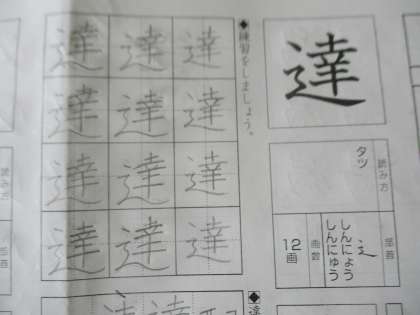 達
読み方
タツ
部首
⻌
しんにょう
しんにゅう
画数
12画
◆練習をしましょう。
達達達
達達達
達達達
達達達
◆
達達